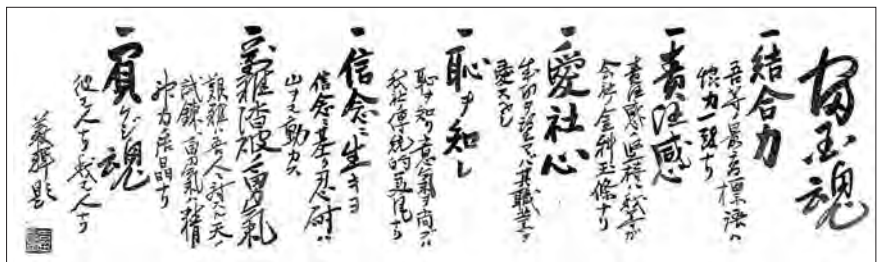 富国魂
一結合力
吾等ノ最高標語ハ
協力一致ナリ
一責任感
責任感ノ 我等ガ
会社ノ金科玉條ナリ
一愛社心
成功ヲ望マバ其職業ヲ
愛スベシ
一恥ヲ知レ
恥ヲ知リ意氣ヲ尚ブハ
我社伝統的美風ナリ
一信念ニ生キヨ
信念ニ基ク忍耐ハ
山ヲモ動カス
一萬難踏破ノ勇氣
艱難ハ吾人ニ対スル天ノ
試錬、勇氣ハ精
神力 ナリ
一負ケジ魂
彼モ人ナリ我モ人ナリ
義輝題